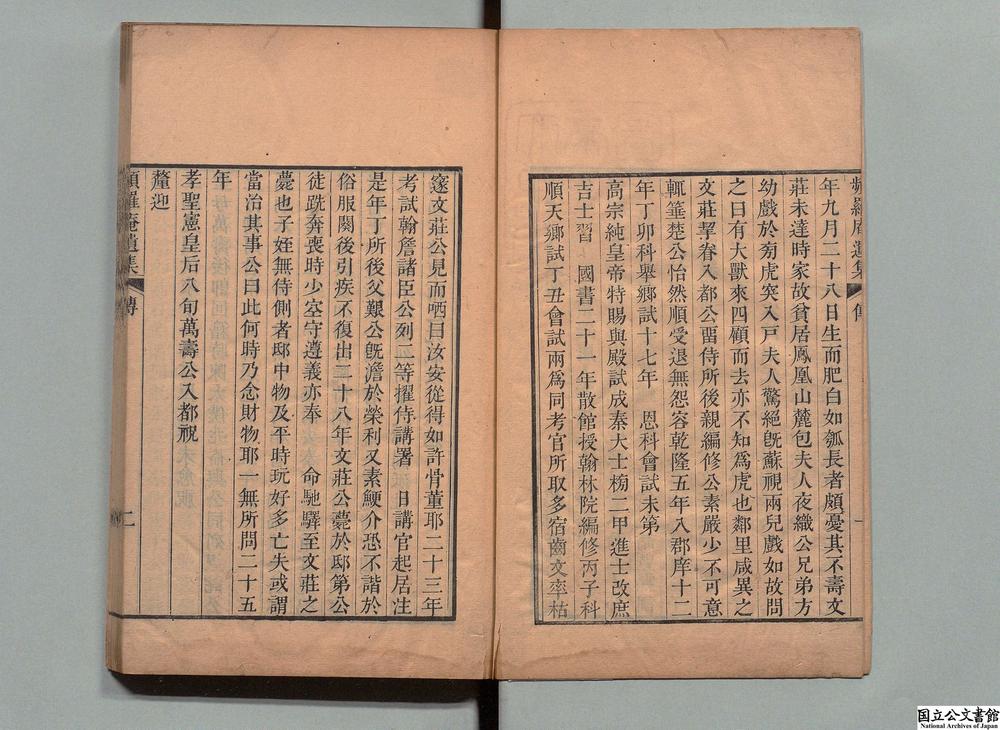 頻羅庵遺集
傳
一
年九月二十八日生而肥白如瓠長者頗憂其不壽文
莊未達時家故貧居鳳凰山麓包夫人夜織公兄弟方
幼戲於旁虎突入戸夫人驚絕既蘇視兩兒戲如故問
之曰有大獸來四顧而去亦不知爲虎也鄰里咸異之
文莊挈眷入都公畱侍所後親編修公素嚴少不可意
輒箠楚公怡然順受退無怨容乾隆五年入郡庠十二
年丁卯科舉鄉試十七年 恩科會試未第
高宗純皇帝特賜與殿試成秦大士榜二甲進士改庶
吉士習 國書二十一年散館授翰林院編修丙子科
順天鄉試丁丑會試兩爲同考官所取多宿齒文率枯
窔文莊公見而哂曰汝安從得如許骨董耶二十三年
考試翰詹諸臣公列二等擢侍講署 日講官起居注
是年丁所後父艱公既澹於榮利又素鯁介恐不諧於
俗服闋後引疾不復出二十八年文莊公薨於邸第公
徒跣奔喪時少空守遵義亦奉 命馳驛至文莊之
薨也子姪無侍側者邸中物及平時玩好多亡失或謂
當治其事公曰此何時乃念財物耶一無所問二十五
年
孝聖憲皇后八旬萬壽公入都祝
釐迎
頻羅庵遺集
傳
二
国立公文書館
National Archives of Japan